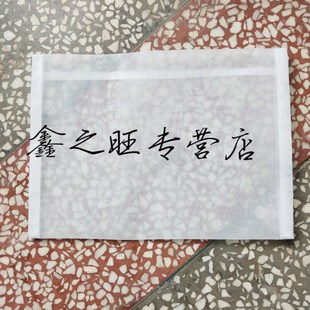 鑫之旺专营店